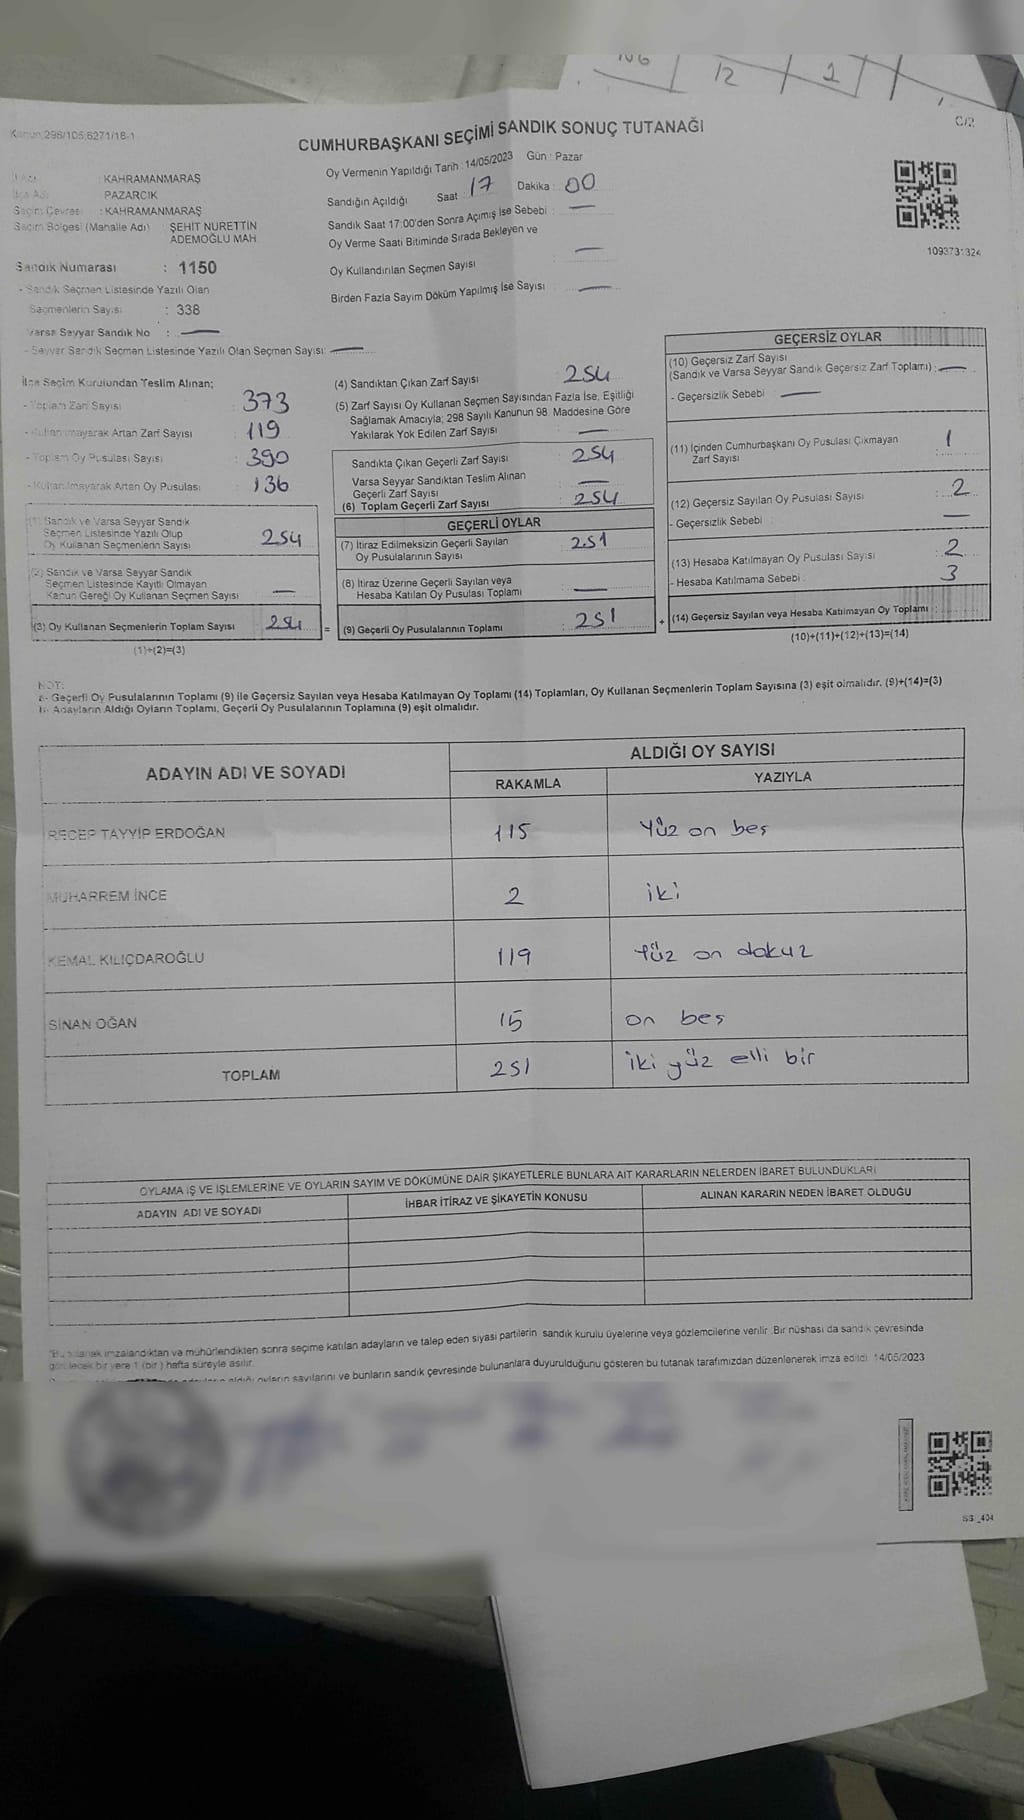 12 2
Kanun;298/105,6271/18-1
C/2
CUMHURBAŞKANI SEÇİMİ SANDIK SONUÇ TUTANAĞI
İl Adı : KAHRAMANMARAŞ
İlçe Adı : PAZARCIK
Seçim Çevresi : KAHRAMANMARAŞ
Seçim Bölgesi (Mahalle Adı) ŞEHİT NURETTİN
ADEMOĞLU MAH
Sandık Numarası : 1150
- Sandık Seçmen Listesinde Yazılı Olan
Seçmenlerin Sayısı : 338
Varsa Seyyar Sandık No :
- Seyyar Sandık Seçmen Listesinde Yazılı Olan Seçmen Sayısı:
Oy Vermenin Yapıldığı Tarih : 14/05/2023 Gün : Pazar
Sandığın Açıldığı Saat : 17 Dakika : 00
Sandık Saat 17:00'den Sonra Açımış İse Sebebi :
Oy Verme Saati Bitiminde Sırada Bekleyen ve
Oy Kullandırılan Seçmen Sayısı
Birden Fazla Sayım Döküm Yapılmış İse Sayısı :
1093731324
İlçe Seçim Kurulundan Teslim Alınan;
- Toplam Zarf Sayısı : 373
- Kullanılmayarak Artan Zarf Sayısı : 119
- Toplam Oy Pusulası Sayısı : 390
- Kullanılmayarak Artan Oy Pusulası : 136
(1) Sandık ve Varsa Seyyar Sandık
Seçmen Listesinde Yazılı Olup
Oy Kullanan Seçmenlerin Sayısı 254
(2) Sandık ve Varsa Seyyar Sandık
Seçmen Listesinde Kayıtlı Olmayan
Kanun Gereği Oy Kullanan Seçmen Sayısı :
(3) Oy Kullanan Seçmenlerin Toplam Sayısı 254 =
(1)+(2)=(3)
(4) Sandıktan Çıkan Zarf Sayısı : 254
(5) Zarf Sayısı Oy Kullanan Seçmen Sayısından Fazla İse, Eşitliği
Sağlamak Amacıyla; 298 Sayılı Kanunun 98. Maddesine Göre
Yakılarak Yok Edilen Zarf Sayısı :
Sandıkta Çıkan Geçerli Zarf Sayısı : 254
Varsa Seyyar Sandıktan Teslim Alınan
Geçerli Zarf Sayısı :
(6) Toplam Geçerli Zarf Sayısı : 254
GEÇERLİ OYLAR
(7) İtiraz Edilmeksizin Geçerli Sayılan : 251
Oy Pusulalarının Sayısı
(8) İtiraz Üzerine Geçerli Sayılan veya
Hesaba Katılan Oy Pusulası Toplamı :
(9) Geçerli Oy Pusulalarının Toplamı : 251 +
GEÇERSİZ OYLAR
(10) Geçersiz Zarf Sayısı
(Sandık ve Varsa Seyyar Sandık Geçersiz Zarf Toplamı) :
- Geçersizlik Sebebi :
(11) İçinden Cumhurbaşkanı Oy Pusulası Çıkmayan : 1
Zarf Sayısı
(12) Geçersiz Sayılan Oy Pusulası Sayısı : 2
- Geçersizlik Sebebi :
(13) Hesaba Katılmayan Oy Pusulası Sayısı : 2
- Hesaba Katılmama Sebebi : 3
(14) Geçersiz Sayılan veya Hesaba Katılmayan Oy Toplamı :
(10)+(11)+(12)+(13)=(14)
NOT:
a- Geçerli Oy Pusulalarının Toplamı (9) ile Geçersiz Sayılan veya Hesaba Katılmayan Oy Toplamı (14) Toplamları, Oy Kullanan Seçmenlerin Toplam Sayısına (3) eşit olmalıdır. (9)+(14)=(3)
b- Adayların Aldığı Oyların Toplamı, Geçerli Oy Pusulalarının Toplamına (9) eşit olmalıdır.
ADAYIN ADI VE SOYADI
ALDIĞI OY SAYISI
RAKAMLA YAZIYLA
RECEP TAYYİP ERDOĞAN 115 Yüz on beş
MUHARREM İNCE 2 iki
KEMAL KILIÇDAROĞLU 119 Yüz on dokuz
SİNAN OĞAN 15 on beş
TOPLAM 251 iki yüz elli bir
OYLAMA İŞ VE İŞLEMLERİNE VE OYLARIN SAYIM VE DÖKÜMÜNE DAİR ŞİKAYETLERLE BUNLARA AİT KARARLARIN NELERDEN İBARET BULUNDUKLARI
ADAYIN ADI VE SOYADI İHBAR İTİRAZ VE ŞİKAYETİN KONUSU ALINAN KARARIN NEDEN İBARET OLDUĞU
imzalandıktan ve mühürlendikten sonra seçime katılan adayların ve talep eden siyasi partilerin sandık kurulu üyelerine veya gözlemcilerine verilir. Bir nüshası da sandık çevresinde
bir yere 1 (bir) hafta süreyle asılır.
aldığı oyların sayılarını ve bunların sandık çevresinde bulunanlara duyurulduğunu gösteren bu tutanak tarafımızdan düzenlenerek imza edildi. 14/05/2023
SS_404